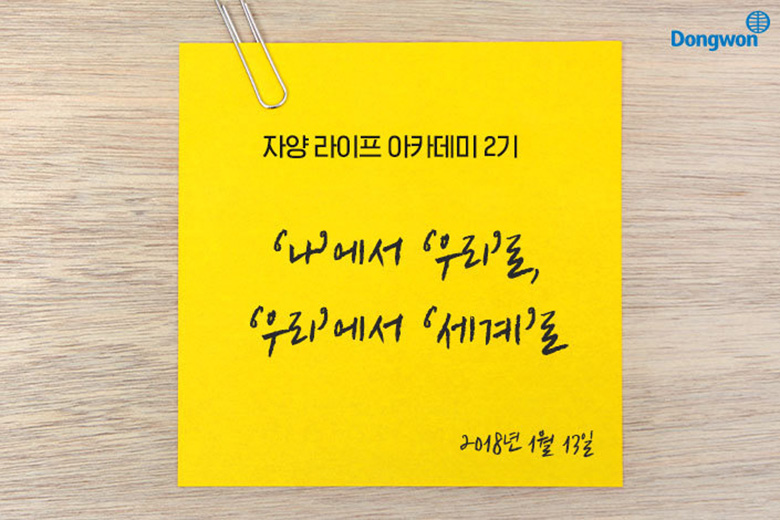 Dongwon
자양 라이프 아카데미 2기
‘나’에서 ‘우리’로,
‘우리’에서 ‘세계’로
2018년 1월 13일